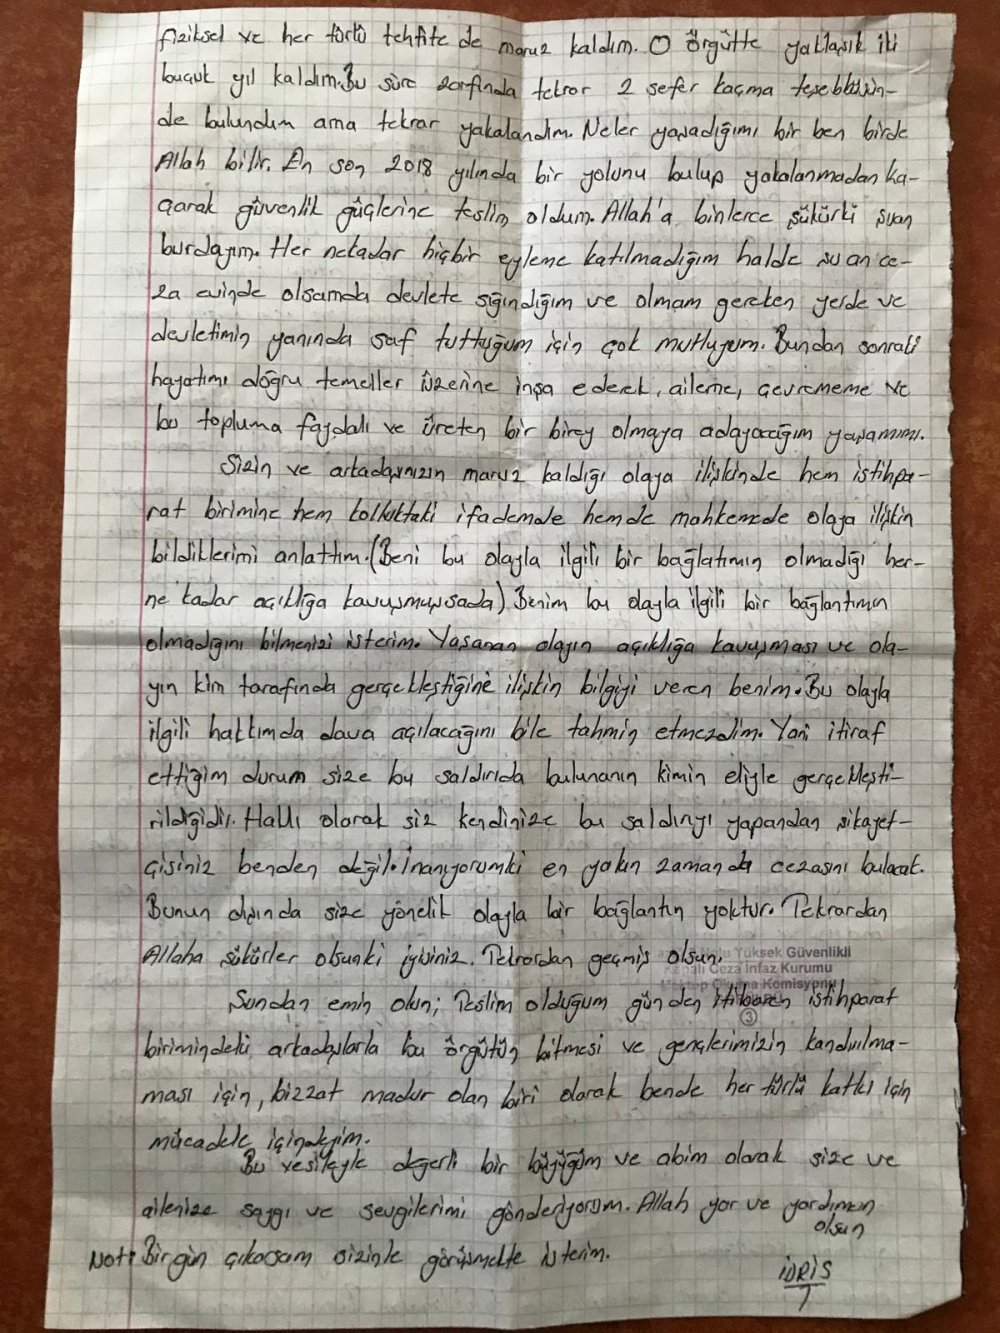 fiziksel ve her türlü tehtite de maruz kaldım. O örgütte yaklaşık iki
buçuk yıl kaldım. Bu süre zarfında tekrar 2 sefer kaçma teşebbüsün-
de bulundum ama tekrar yakalandım. Neler yaşadığımı bir ben birde
Allah bilir. En son 2018 yılında bir yolunu bulup yakalanmadan ka-
çarak güvenlik güçlerine teslim oldum. Allah'a binlerce şükürki şuan
burdayım. Her nekadar hiçbir eyleme katılmadığım halde şu an ce-
za evinde olsamda devlete sığındığım ve olmam gereken yerde ve
devletimin yanında saf tuttuğum için çok mutluyum. Bundan sonraki
hayatımı doğru temeller üzerine inşa ederek, aileme, çevrememe ve
bu topluma faydalı ve üreten bir birey olmaya adayacağım yaşamımı.
Sizin ve arkadaşınızın maruz kaldığı olaya ilişkinde hem istihpa-
rat birimine hem kolluktaki ifademde hemde mahkemede olaya ilişkin
bildiklerimi anlattım. (Beni bu olayla ilgili bir bağlatımın olmadığı her-
ne kadar açıklığa kavuşmuşsada) Benim bu olayla ilgili bir bağlantımın
olmadığını bilmenizi isterim. Yaşanan olayın açıklığa kavuşması ve ola-
yın kim tarafında gerçekleştiğine ilişkin bilgiyi veren benim. Bu olayla
ilgili hakkımda dava açılacağını bile tahmin etmezdim. Yani itiraf
ettiğim durum size bu saldırıda bulunanın kimin eliyle gerçekleşti-
rildiğidir. Haklı olarak siz kendinize bu saldırıyı yapandan şikayet-
çisiniz benden değil. İnanıyorumki en yakın zamanda cezasını bulacak.
Bunun dışında size yönelik olayla bir bağlantın yoktur. Tekrardan
Allaha şükürler olsunki iyisiniz. Tekrardan geçmiş olsun.
Yüksek Güvenlikli
Kapalı Ceza İnfaz Kurumu
Mektup Okuma Komisyonu
3
Şundan emin olun; Teslim olduğum günden itibaren istihparat
birimindeki arkadaşlarla bu örgütün bitmesi ve gençlerimizin kandırılma-
ması için, bizzat madur olan biri olarak bende her türlü katkı için
mücadele içindeyim.
Bu vesileyle değerli bir büyüğüm ve abim olarak size ve
ailenize saygı ve sevgilerimi gönderiyorum. Allah yar ve yardımcın
olsun
Not: Bir gün çıkarsam sizinle görüşmekte isterim.
İDRİS